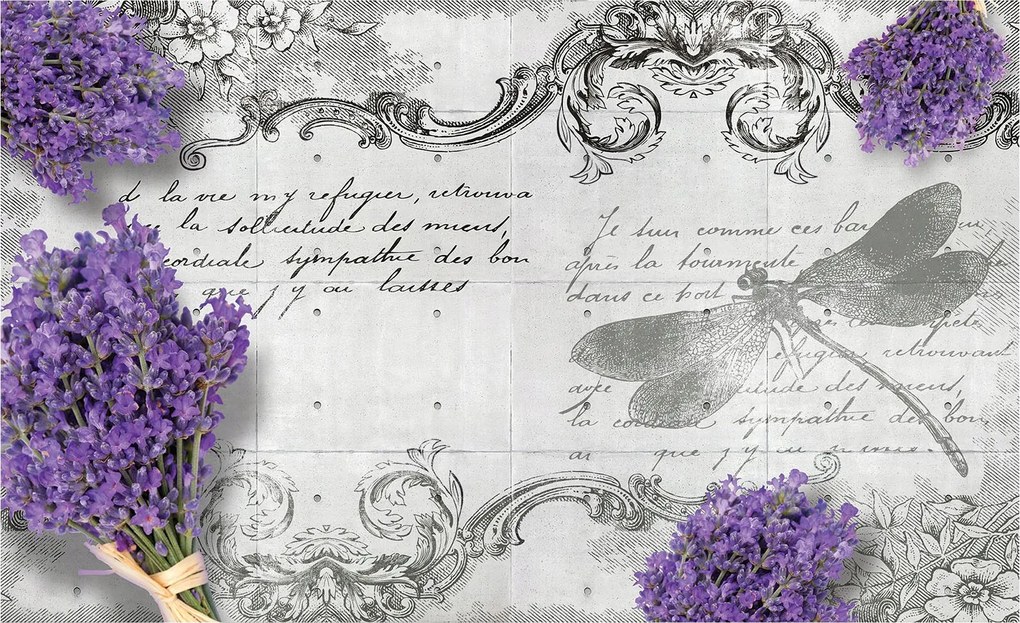 d la vie m'y refugier, retrouva
la sollicitude des miens,
cordiale sympathie des bon
que j'y ai laissés
Je suis comme ces bar
après la tourmente
dans ce port
refugier retrouvant
avec des miens,
la cordiale sympathie des bon
que j'y